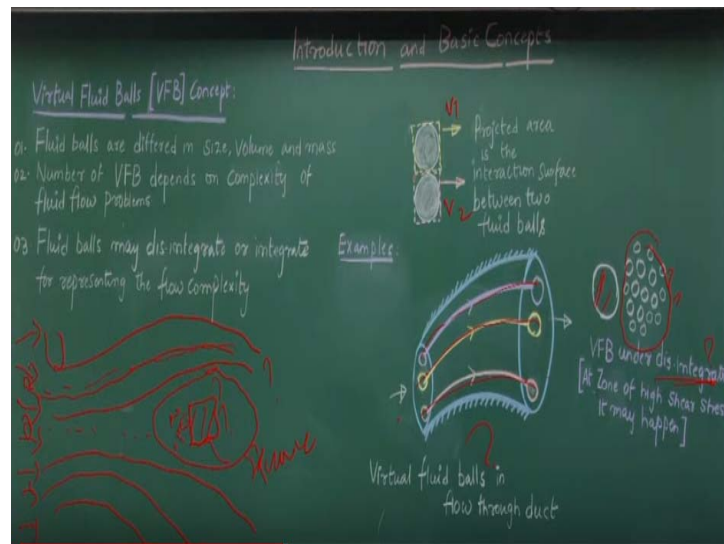 Introduction and Basic Concepts
Virtual Fluid Balls [VFB] Concept:
01. Fluid balls are differed in size, Volume and mass
02. Number of VFB depends on complexity of
fluid flow problems
03 Fluid balls may dis-integrate or integrate
for representing the flow complexity
V1
V2
Projected area
is the
interaction surface
between two
fluid balls
Examples:
Virtual fluid balls in
flow through duct
?
VFB under dis-integrate
[At Zone of high shear stress
It may happen]